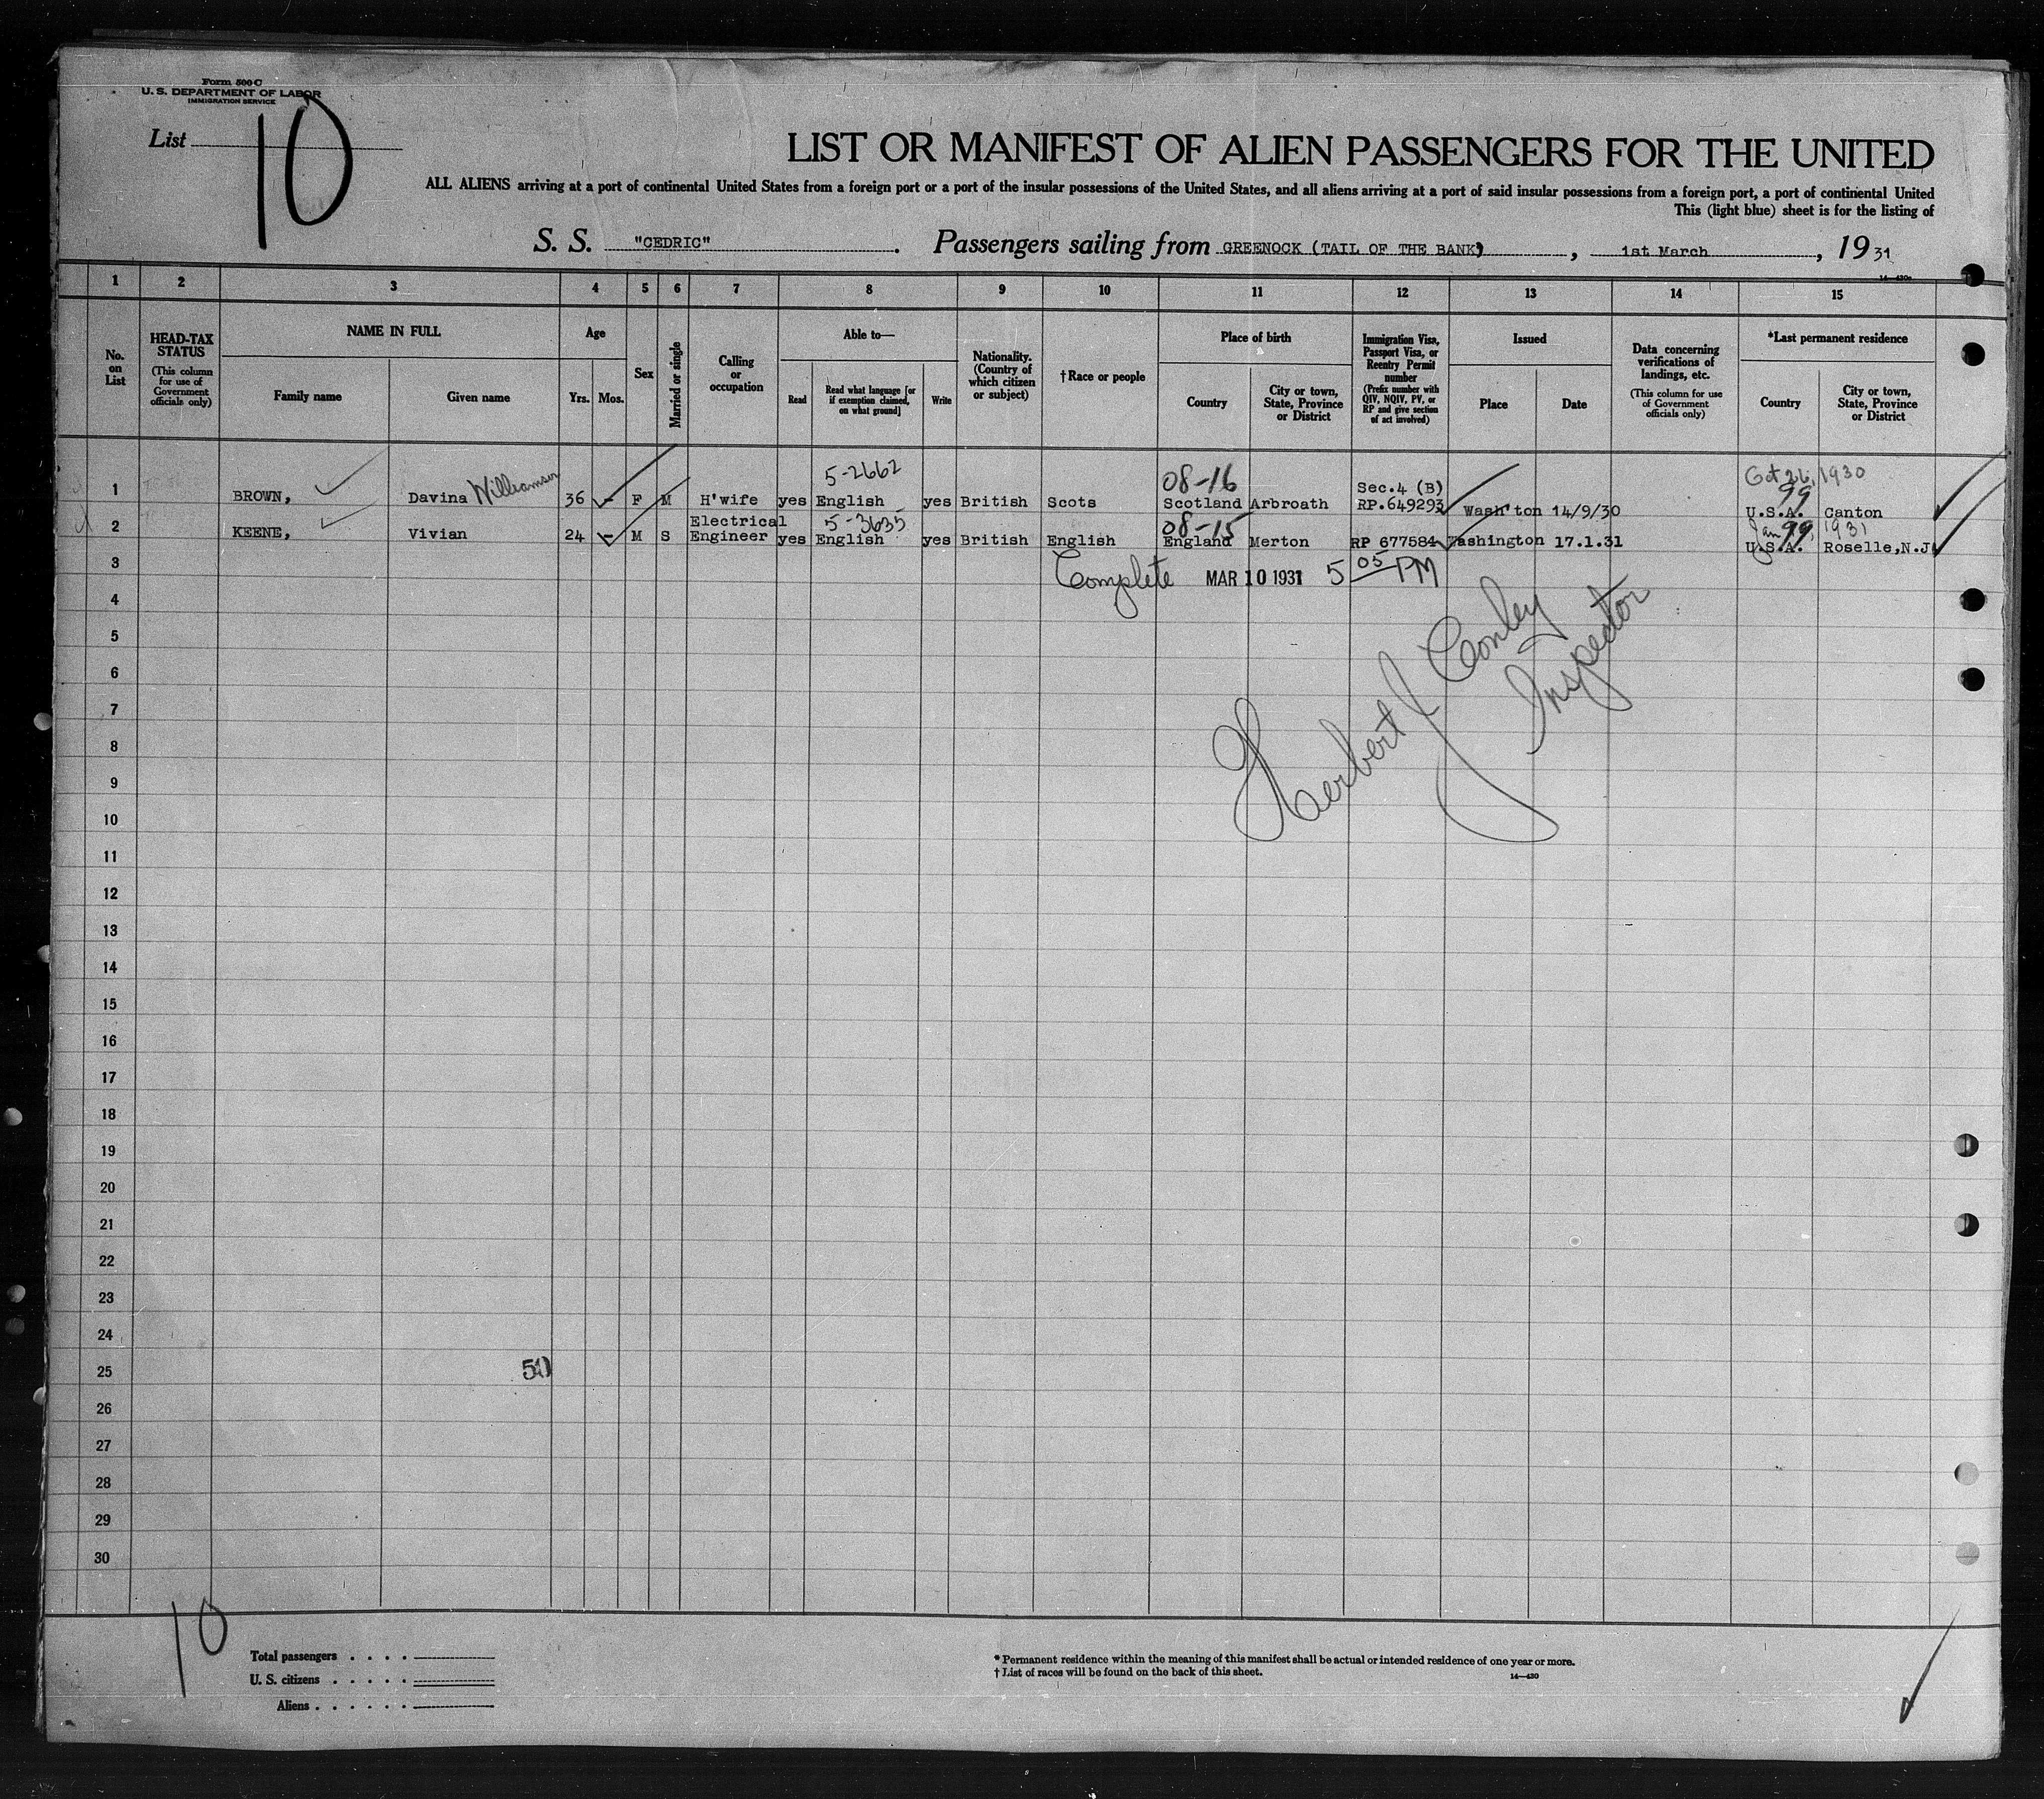 Form 500 C
U. S. DEPARTMENT OF LABOR
IMMIGRATION SERVICE
List 10
LIST OR MANIFEST OF ALIEN PASSENGERS FOR THE UNITED
ALL ALIENS arriving at a port of continental United States from a foreign port or a port of the insular possessions of the United States, and all aliens arriving at a port of said insular possessions from a foreign port, a port of continental United
This (light blue) sheet is for the listing of
S. S. "CEDRIC". Passengers sailing from GREENOCK (TAIL OF THE BANK), 1st March, 1931
14-430a
1 2 3 4 5 6 7 8 9 10 11 12 13 14 15
No. on List
HEAD-TAX STATUS (This column for use of Government officials only)
NAME IN FULL
Family name Given name
Age
Yrs. Mos.
Sex
Married or single
Calling or occupation
Able to—
Read Read what language [or if exemption claimed, on what ground] Write
Nationality. (Country of which citizen or subject)
†Race or people
Place of birth
Country City or town, State, Province or District
Immigration Visa, Passport Visa, or Reentry Permit number (Prefix number with QIV, NQIV, PV, or RP and give section of act involved)
Issued
Place Date
Data concerning verifications of landings, etc. (This column for use of Government officials only)
*Last permanent residence
Country City or town, State, Province or District
5-2662 08-16 Sec.4 (B) Oct 26, 1930
99
1 BROWN, Davina Williamson 36 - F M H'wife yes English yes British Scots Scotland Arbroath RP.649293 Wash'ton 14/9/30 U.S.A. Canton
Electrical 5-3635 08-15 Jan 99, 1931
2 KEENE, Vivian 24 - M S Engineer yes English yes British English England Merton RP 677584 Washington 17.1.31 U.S.A. Roselle,N.J
3 Complete MAR 10 1931 5 05 PM
4
5
6
7
8
9
10
11
12
13
14
15
16
17
18
19
20
21
22
23
24
25 50
26
27
28
29
30
Herbert J Conley
Inspector
10
Total passengers . . . .
U. S. citizens . . . . .
Aliens . . . . . .
* Permanent residence within the meaning of this manifest shall be actual or intended residence of one year or more.
† List of races will be found on the back of this sheet. 14—430